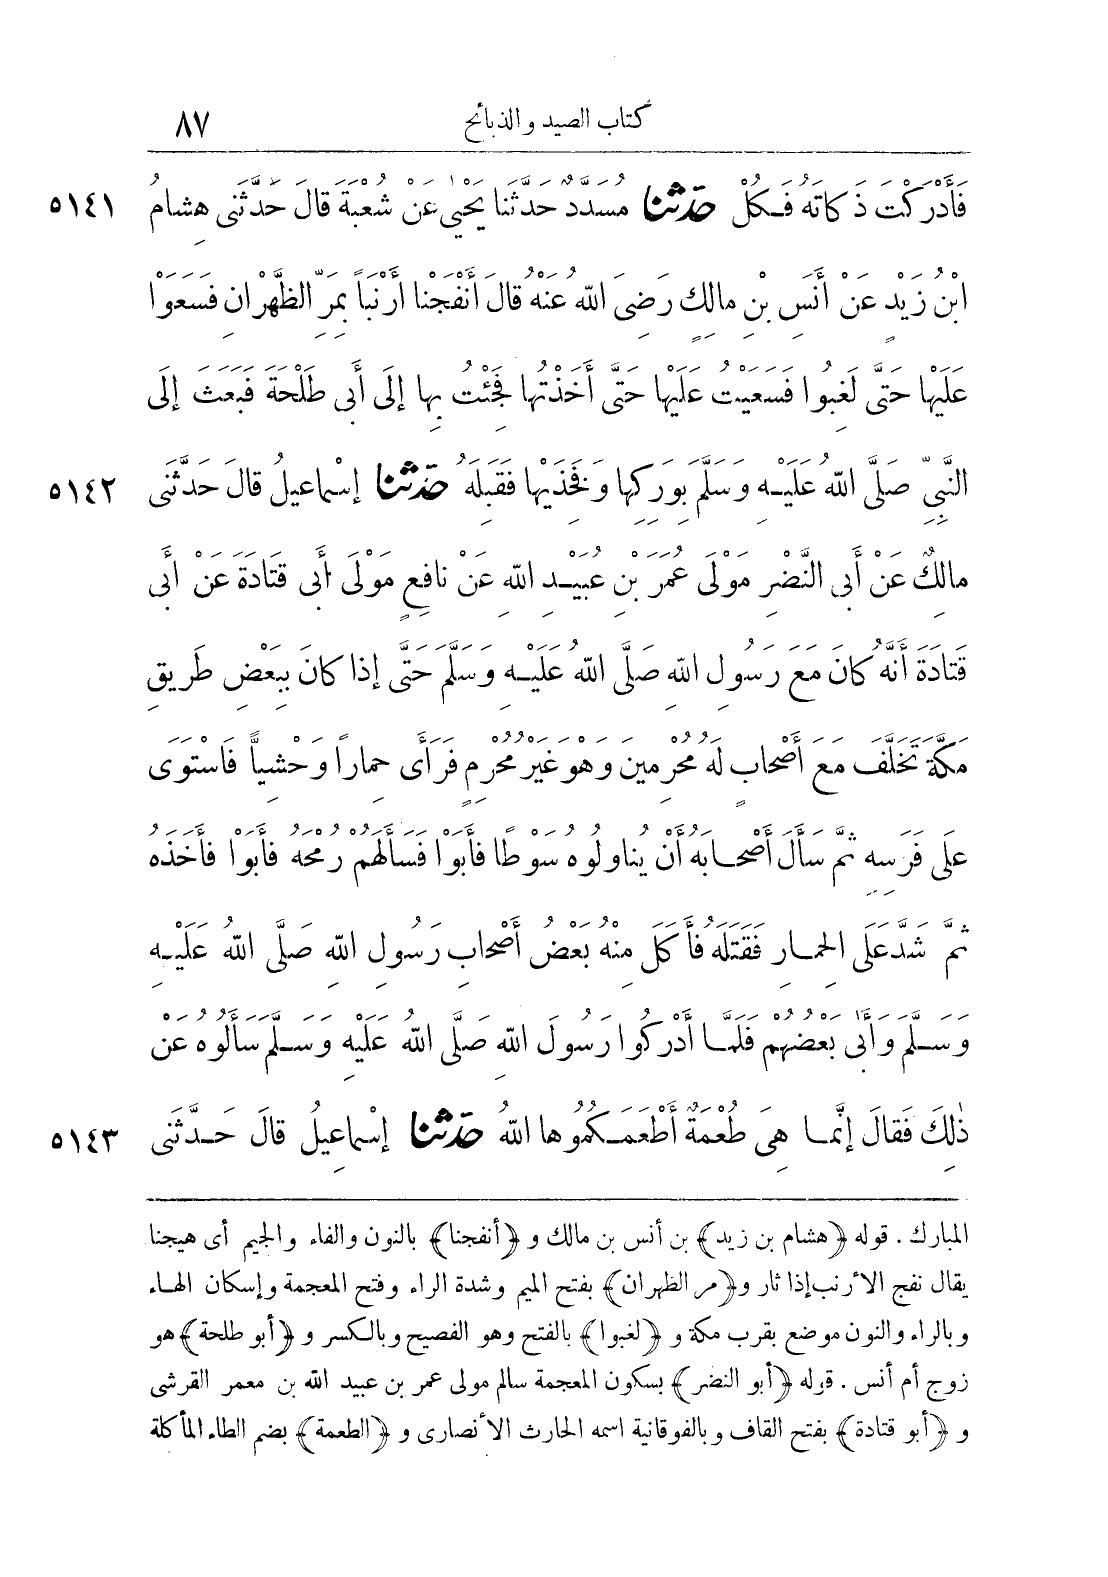 كتاب الصيد والذبائح ٨٧
فَأَدْرَكْتَ ذَكَاتَهُ فَكُلْ حَدَّثَنَا مُسَدَّدٌ حَدَّثَنَا يَحْيَى عَنْ شُعْبَةَ قَالَ حَدَّثَنِى هِشَامُ ٥١٤١
ابْنُ زَيْدٍ عَنْ أَنَسِ بْنِ مَالِكٍ رَضِىَ اللهُ عَنْهُ قَالَ أَنْفَجْنَا أَرْنَباً بِمَرِّ الظَّهْرَانِ فَسَعَوْا
عَلَيْهَا حَتَّى لَغَبُوا فَسَعَيْتُ عَلَيْهَا حَتَّى أَخَذْتُهَا فَجِئْتُ بِهَا إِلَى أَبِى طَلْحَةَ فَبَعَثَ إِلَى
النَّبِىِّ صَلَّى اللهُ عَلَيْهِ وَسَلَّمَ بِوَرِكِهَا وَفَخِذَيْهَا فَقَبِلَهُ حَدَّثَنَا إِسْمَاعِيلُ قَالَ حَدَّثَنِى ٥١٤٢
مَالِكٌ عَنْ أَبِى النَّضْرِ مَوْلَى عُمَرَ بْنِ عُبَيْدِ اللهِ عَنْ نَافِعٍ مَوْلَى أَبِى قَتَادَةَ عَنْ أَبِى
قَتَادَةَ أَنَّهُ كَانَ مَعَ رَسُولِ اللهِ صَلَّى اللهُ عَلَيْهِ وَسَلَّمَ حَتَّى إِذَا كَانَ بِبَعْضِ طَرِيقِ
مَكَّةَ تَخَلَّفَ مَعَ أَصْحَابٍ لَهُ مُحْرِمِينَ وَهُوَ غَيْرُ مُحْرِمٍ فَرَأَى حِمَاراً وَحْشِيّاً فَاسْتَوَى
عَلَى فَرَسِهِ ثُمَّ سَأَلَ أَصْحَابَهُ أَنْ يُنَاوِلُوهُ سَوْطًا فَأَبَوْا فَسَأَلَهُمْ رُمْحَهُ فَأَبَوْا فَأَخَذَهُ
ثُمَّ شَدَّ عَلَى الْحِمَارِ فَقَتَلَهُ فَأَكَلَ مِنْهُ بَعْضُ أَصْحَابِ رَسُولِ اللهِ صَلَّى اللهُ عَلَيْهِ
وَسَلَّمَ وَأَبَى بَعْضُهُمْ فَلَمَّا أَدْرَكُوا رَسُولَ اللهِ صَلَّى اللهُ عَلَيْهِ وَسَلَّمَ سَأَلُوهُ عَنْ
ذٰلِكَ فَقَالَ إِنَّمَا هِىَ طُعْمَةٌ أَطْعَمَكُمُوهَا اللهُ حَدَّثَنَا إِسْمَاعِيلُ قَالَ حَدَّثَنِى ٥١٤٣
المبارك . قوله ﴿هشام بن زيد﴾ بن أنس بن مالك و ﴿أنفجنا﴾ بالنون والفاء والجيم أى هيجنا
يقال نفج الأرنب إذا ثار و﴿مر الظهران﴾ بفتح الميم وشدة الراء وفتح المعجمة وإسكان الهاء
وبالراء والنون موضع بقرب مكة و ﴿لغبوا﴾ بالفتح وهو الفصيح وبالكسر و ﴿أبو طلحة﴾ هو
زوج أم أنس . قوله ﴿أبو النضر﴾ بسكون المعجمة سالم مولى عمر بن عبيد الله بن معمر القرشى
و ﴿أبو قتادة﴾ بفتح القاف وبالفوقانية اسمه الحارث الأنصارى و ﴿الطعمة﴾ بضم الطاء المأكلة